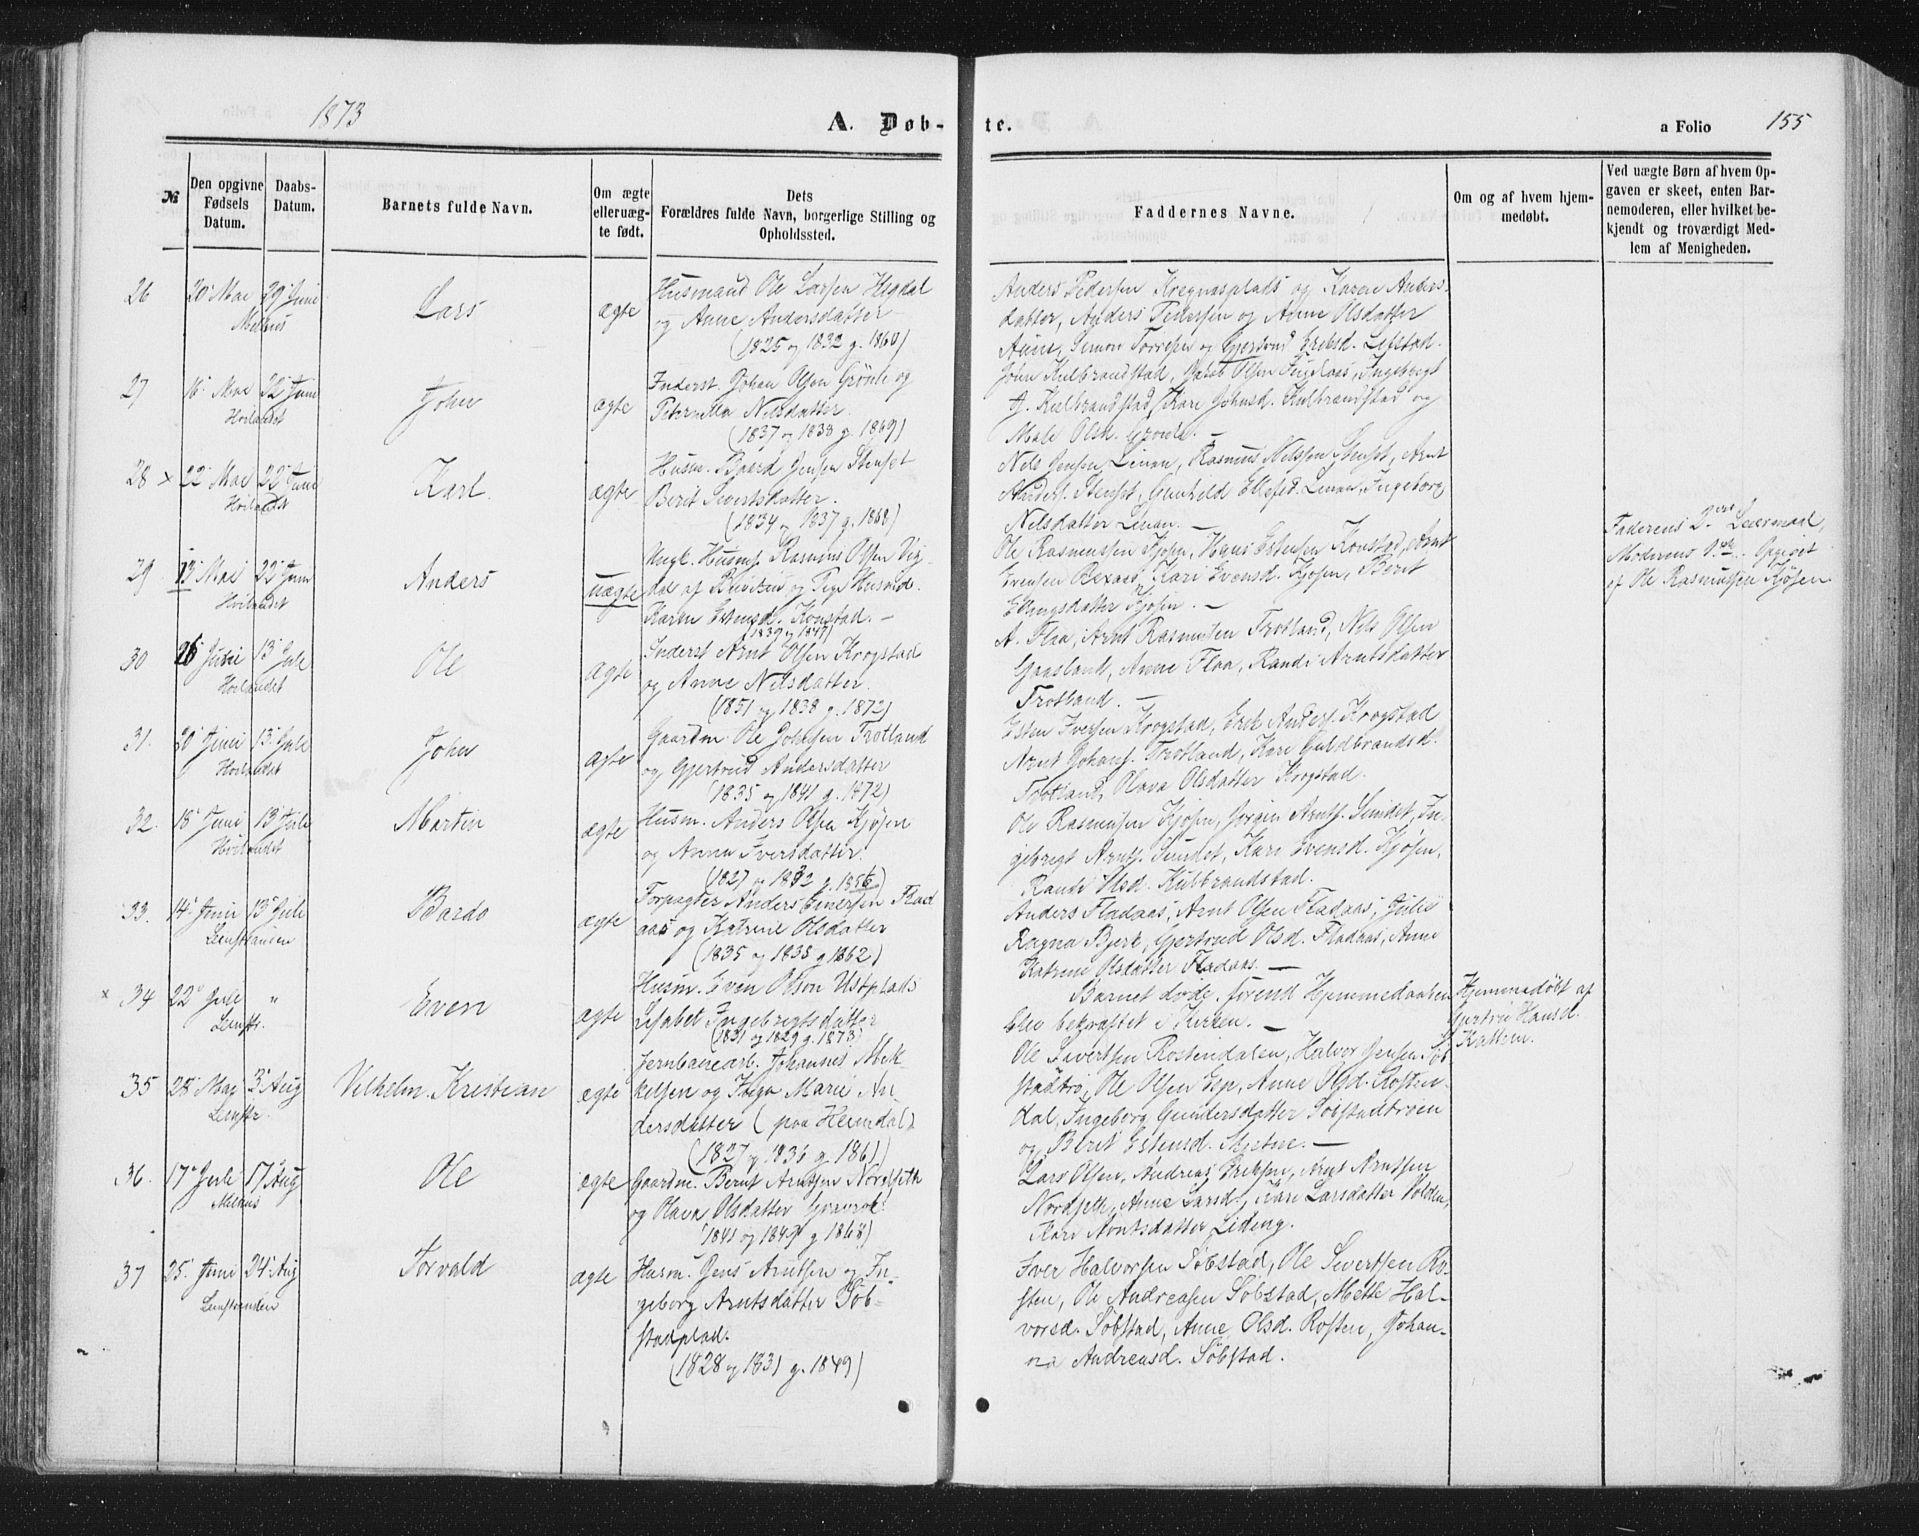 1873
A. Døb-
te.
a Folio
155
№
Den opgivne
Fødsels
Datum.
Daabs-
Datum.
Barnets fulde Navn.
Om ægte
eller uæg-
te født.
Dets
Forældres fulde Navn, borgerlige Stilling og
Opholdssted.
Faddernes Navne.
Om og af hvem hjem-
medøbt.
Ved uægte Børn af hvem Op-
gaven er skeet, enten Bar-
nemoderen, eller hvilket be-
kjendt og troværdigt Med-
lem af Menigheden.
26
20 Mai
29 Juni
Melhus
Lars
ægte
Husmand Ole Larsen Hegdal
og Anne Andersdatter
(1825 og 1832 g. 1860)
Anders Pedersen Kregnesplads og Karen Anders-
datter, Anders Pedersen og Anne Olsdatter
Aune, Simon Torresen og Gjertrud Eriksd. Lefstad.
27
16 Mai
22 Juni
Hoilandet
John
ægte
Inderst. Johan Olsen Grönli og
Peternella Nilsdatter.
(1837 og 1838 g. 1869)
John Kulbrandstad, Jakob Olsen Fuglaas, Ingebrigt
J. Kulbrandstad, Kari Johnsd. Kulbrandstad og
Mali Olsd. Grönli. —
28 ×
22 Mai
22 Juni
Hoilandet
Karl
ægte
Husm. Baard Jensen Stenset
Berit Sivertsdatter.
(1834 og 1837 g. 1868)
Nils Jensen Linan, Rasmus Nilssen Stenset, Arnt
Anders. Stenset, Gunhild Ellefsd. Linan, Ingeborg
Nilsdatter Linan. —
29
13 Mai
22 Juni
Hoilandet
Anders
uægte
Ungk. Husm. Rasmus Olsen Vig-
dal af Budvik og Pige Husmd.
Karen Estensd. Konstad. —
(1839 og 1847)
Ole Rasmussen Kjøsen, Hans Estensen Konstad, Arnt
Evensen Rexaas, Kari Evensd. Kjøsen, Berit
Ellingsdatter Kjøsen. —
Faderens 2det Leiermaal,
Moderens 1ste. Opgivet
af Ole Rasmussen Kjøsen
30
26 Juni
13 Juli
Hoilandet
Ole
ægte
Inderst Arnt Olsen Krogstad
og Anne Nilsdatter.
(1851 og 1838 g. 1872)
A. Flaa, Arnt Rasmussen Trotland, Nils Olsen
Gaasland, Anne Flaa, Randi Arntsdatter
Trotland. —
31.
20 Juni
13 Juli
Hoilandet
John
ægte
Gaardm. Ole Johnsen Trotland
og Gjertrud Andersdatter
(1835 og 1841 g. 1872)
Esten Iversen Krogstad, Erik Anders. Krogstad
Arnt Johans. Trotland, Kari Guldbrandsd.
Trotland, Olava Olsdatter Krogstad.
32.
18 Juni
13 Juli
Hoilandet
Martin
ægte
Husm. Anders Olsen Kjøsen
og Anne Iversdatter.
(1827 og 1832 g. 1856)
Ole Rasmussen Kjøsen, Jørgen Arnts. Sundet, In-
gebrigt Arnts. Sundet, Kari Evensd. Kjøsen,
Randi Olsd. Kulbrandstad.
33.
14 Juni
13 Juli
Leinstranden
Bardo
ægte
Forpagter Anders Einersen Flad
aas og Katrine Olsdatter
(1835 og 1838 g 1862)
Anders Fladaas, Arnt Olsen Fladaas, Julie
Ragna Bjerk, Gjertrud Olsd. Fladaas, Anne
Katrine Olsdatter Fladaas. —
× 34
22 Juli
"
Leinstr.
Even
ægte
Husm. Even Olson Ustplads
Lisabet Ingebrigtsdatter
(1831 og 1829 g. 1873)
Barnet døde, forend Hjemmedaaben
blev bekræftet i Kirken. —
Hjemmedøbt af
Gjertru Hansd.
Kattem.
35
28 Mai
3 Aug
Leinstr.
Vilhelm Kristian
ægte
Jernbanearb. Johannes Mik-
kelsen og Inga Marie An-
dersdatter (paa Heimdal)
(1827 og 1836 g. 1861)
Ole Sivertsen Rostendalen, Halvor Jensen Søb
stadtrø, Ole Olsen Esp, Anne Olsd. Rosten-
dal, Ingeborg Gundersdatter Søbstadtrøen
og Berit Estensd. Stjetne. —
36.
17 Juli
17 Aug
Melhus
Ole
ægte
Gaardm. Bernt Arntsen Nordsetth
og Olava Olsdatter Gravrok
(1841 og 1849 g 1868)
Lars Olsen, Andreas Eriksen, Arnt Arntsen
Nordsett, Anne Larsd., Kari Larsdatter Volden,
Kari Arntsdatter Lideng.
37
25 Juni
24 Aug
Leinstranden
Torvald
ægte
Husm. Jens Arntsen og In-
geborg Arntsdatter Søb-
stadplad.
(1828 og 1831 g. 1849)
Iver Halvorsen Søbstad, Ole Sivertsen Ro-
sten, Ole Andreasen Søbstad, Mette Hal-
vorsd. Søbstad, Anne Olsd. Rosten, Johan-
na Andreasd. Søbstad.